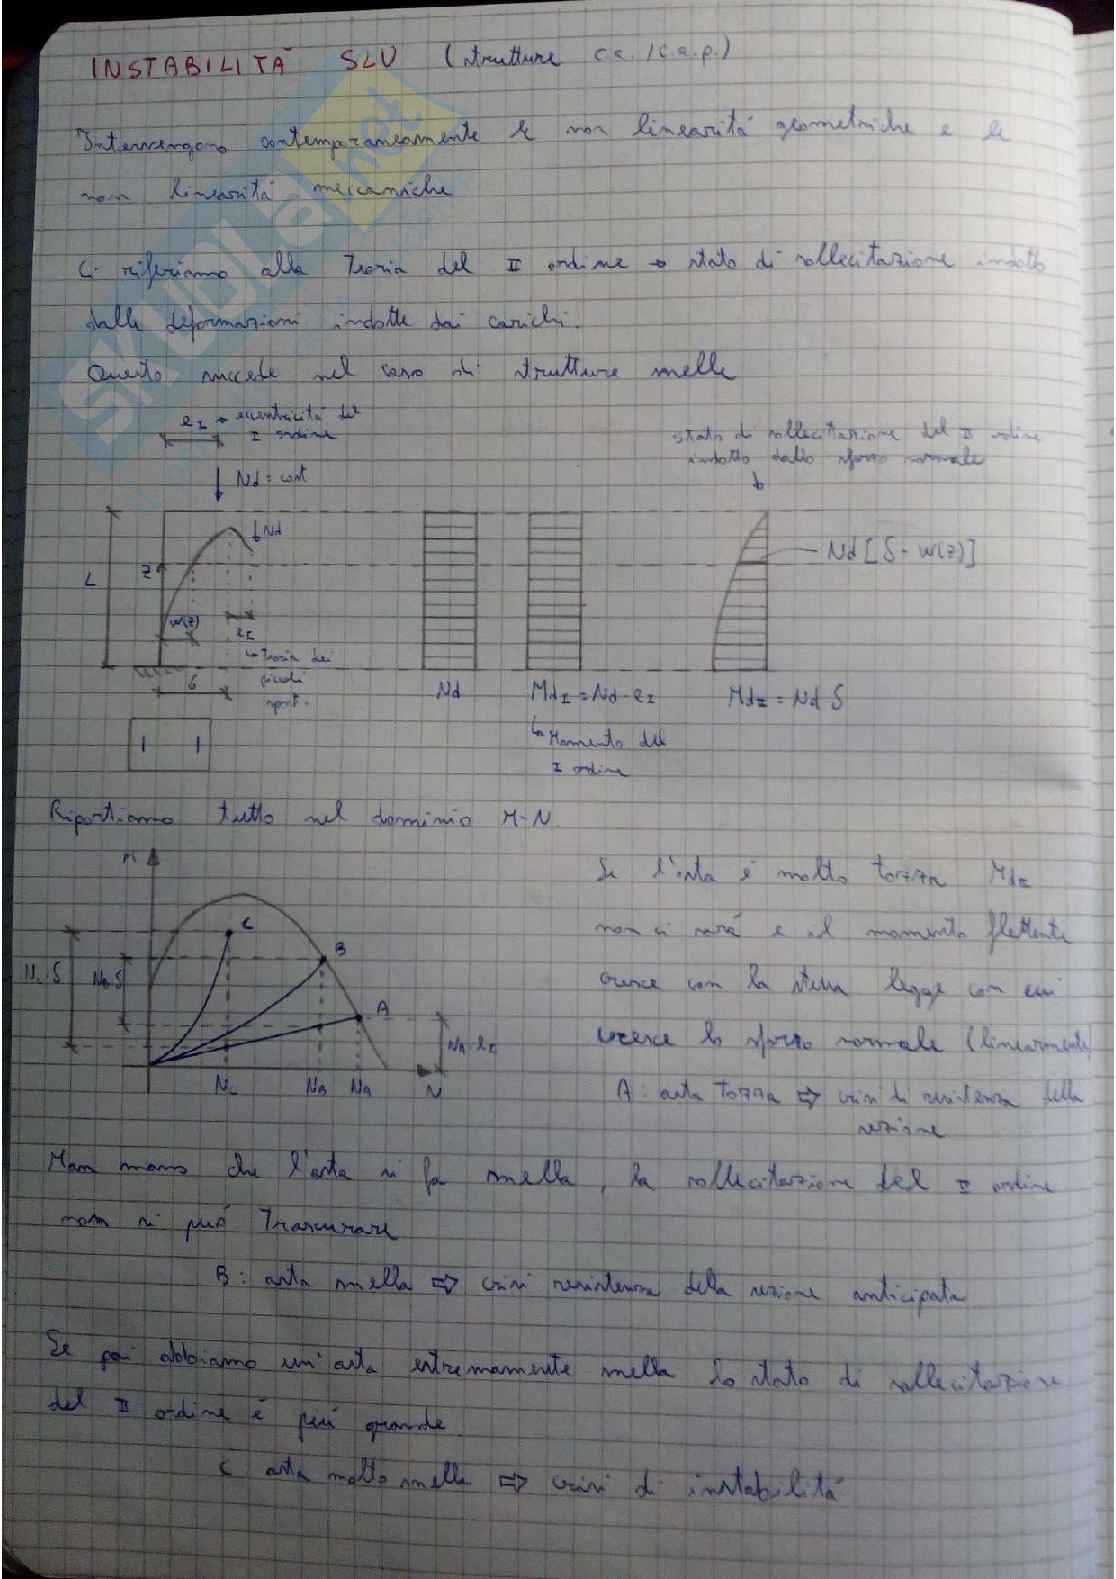 INSTABILITÀ SLU (strutture c.a. / c.a.p.)
Intervengono contemporaneamente le non linearità geometriche e le
non linearità meccaniche
Ci riferiamo alla Teoria del II ordine → stato di sollecitazione indotto
dalle deformazioni indotte dai carichi.
Questo succede nel caso di strutture snelle
e_I → eccentricità del
I ordine
stato di sollecitazione del II ordine
indotto dallo sforzo normale
Nd = cost
Nd
Nd [δ - w(z)]
L
z
w(z)
e_I
Teoria dei
piccoli
spost.
δ
Nd
Md_I = Nd · e_I
Md_II = Nd δ
Momento del
I ordine
Riportiamo tutto nel dominio M-N.
M
Se l'asta è molto tozza Md_II
C
non ci sarà e il momento flettente
B
N_C·δ
N_B·δ
cresce con la stessa legge con cui
A
cresce lo sforzo normale (linearmente)
N_A·e_I
N_C N_B N_A N
A: asta tozza ⇒ crisi di resistenza della
sezione
Man mano che l'asta si fa snella, la sollecitazione del II ordine
non si può trascurare
B: asta snella ⇒ crisi resistenza della sezione anticipata
Se poi abbiamo un'asta estremamente snella lo stato di sollecitazione
del II ordine è più grande.
C asta molto snella ⇒ crisi di instabilità
SKUOLA.net